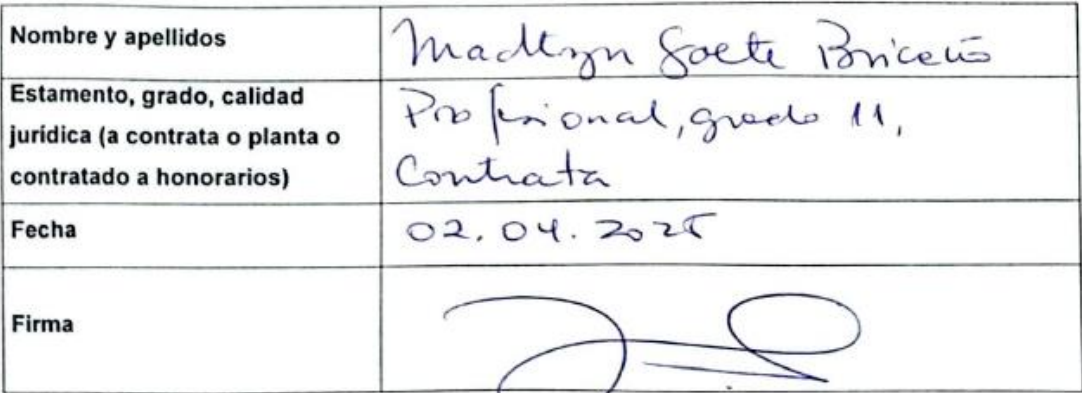 Nombre y apellidos
Madlyn Goete Briceño
Estamento, grado, calidad
jurídica (a contrata o planta o
contratado a honorarios)
Profesional, grado 11,
Contrata
Fecha
02.04.2025
Firma